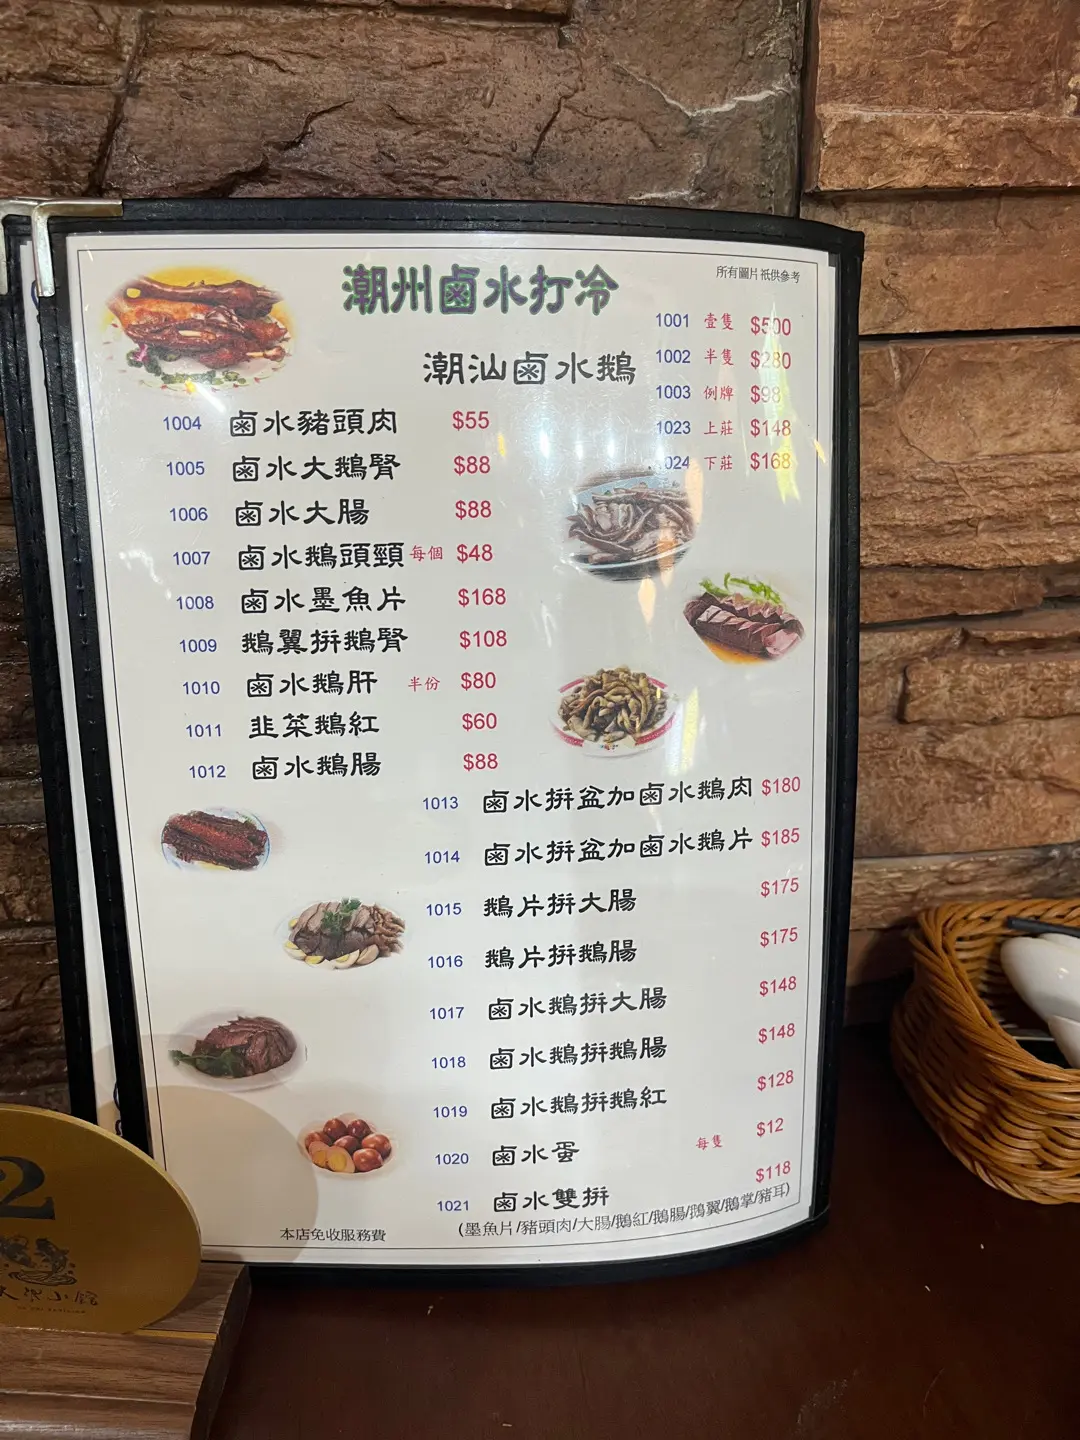 潮州鹵水打冷
所有圖片祇供參考
潮汕鹵水鵝
1001 壹隻 $500
1002 半隻 $280
1003 例牌 $98
1023 上莊 $148
1024 下莊 $168
1004 鹵水豬頭肉 $55
1005 鹵水大鵝腎 $88
1006 鹵水大腸 $88
1007 鹵水鵝頭頸 每個 $48
1008 鹵水墨魚片 $168
1009 鵝翼拼鵝腎 $108
1010 鹵水鵝肝 半份 $80
1011 韭菜鵝紅 $60
1012 鹵水鵝腸 $88
1013 鹵水拼盆加鹵水鵝肉 $180
1014 鹵水拼盆加鹵水鵝片 $185
1015 鵝片拼大腸 $175
1016 鵝片拼鵝腸 $175
1017 鹵水鵝拼大腸 $148
1018 鹵水鵝拼鵝腸 $148
1019 鹵水鵝拼鵝紅 $128
1020 鹵水蛋 每隻 $12
1021 鹵水雙拼 $118
(墨魚片/豬頭肉/大腸/鵝紅/鵝腸/鵝翼/鵝掌/豬耳)
本店免收服務費
2
小館